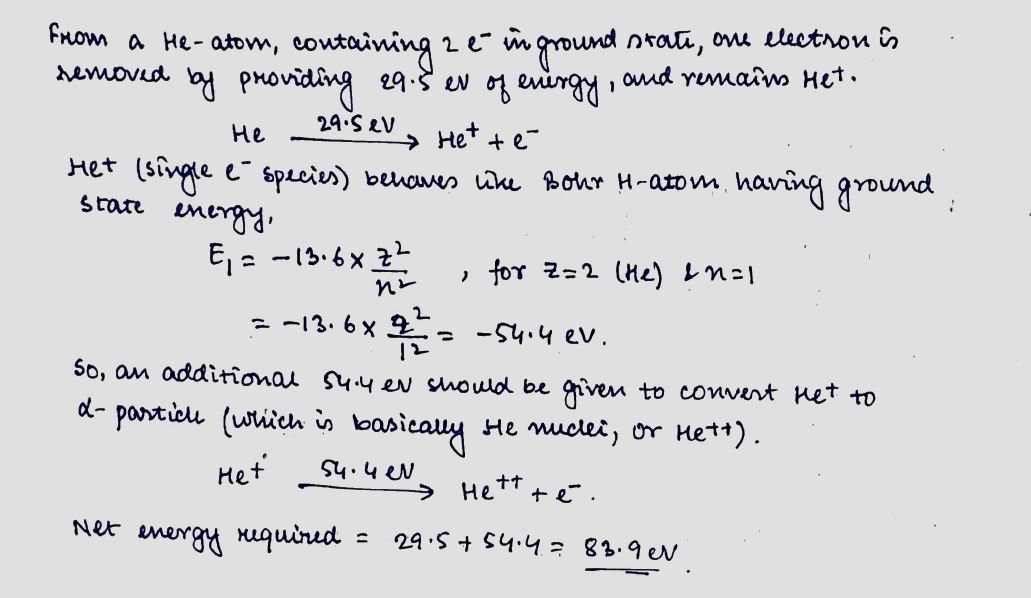 From a He-atom, containing 2 e⁻ in ground state, one electron is
removed by providing 29.5 ev of energy, and remains He+.
He —29.5 eV→ He⁺ + e⁻
He+ (single e⁻ species) behaves like Bohr H-atom, having ground
state energy,
E₁ = -13.6 × z²/n² , for z=2 (He) & n=1
= -13.6 × 2²/1² = -54.4 ev.
So, an additional 54.4 ev should be given to convert He+ to
α-particle (which is basically He nuclei, or He++).
He⁺ —54.4 eV→ He⁺⁺ + e⁻.
Net energy required = 29.5 + 54.4 = 83.9 eV.